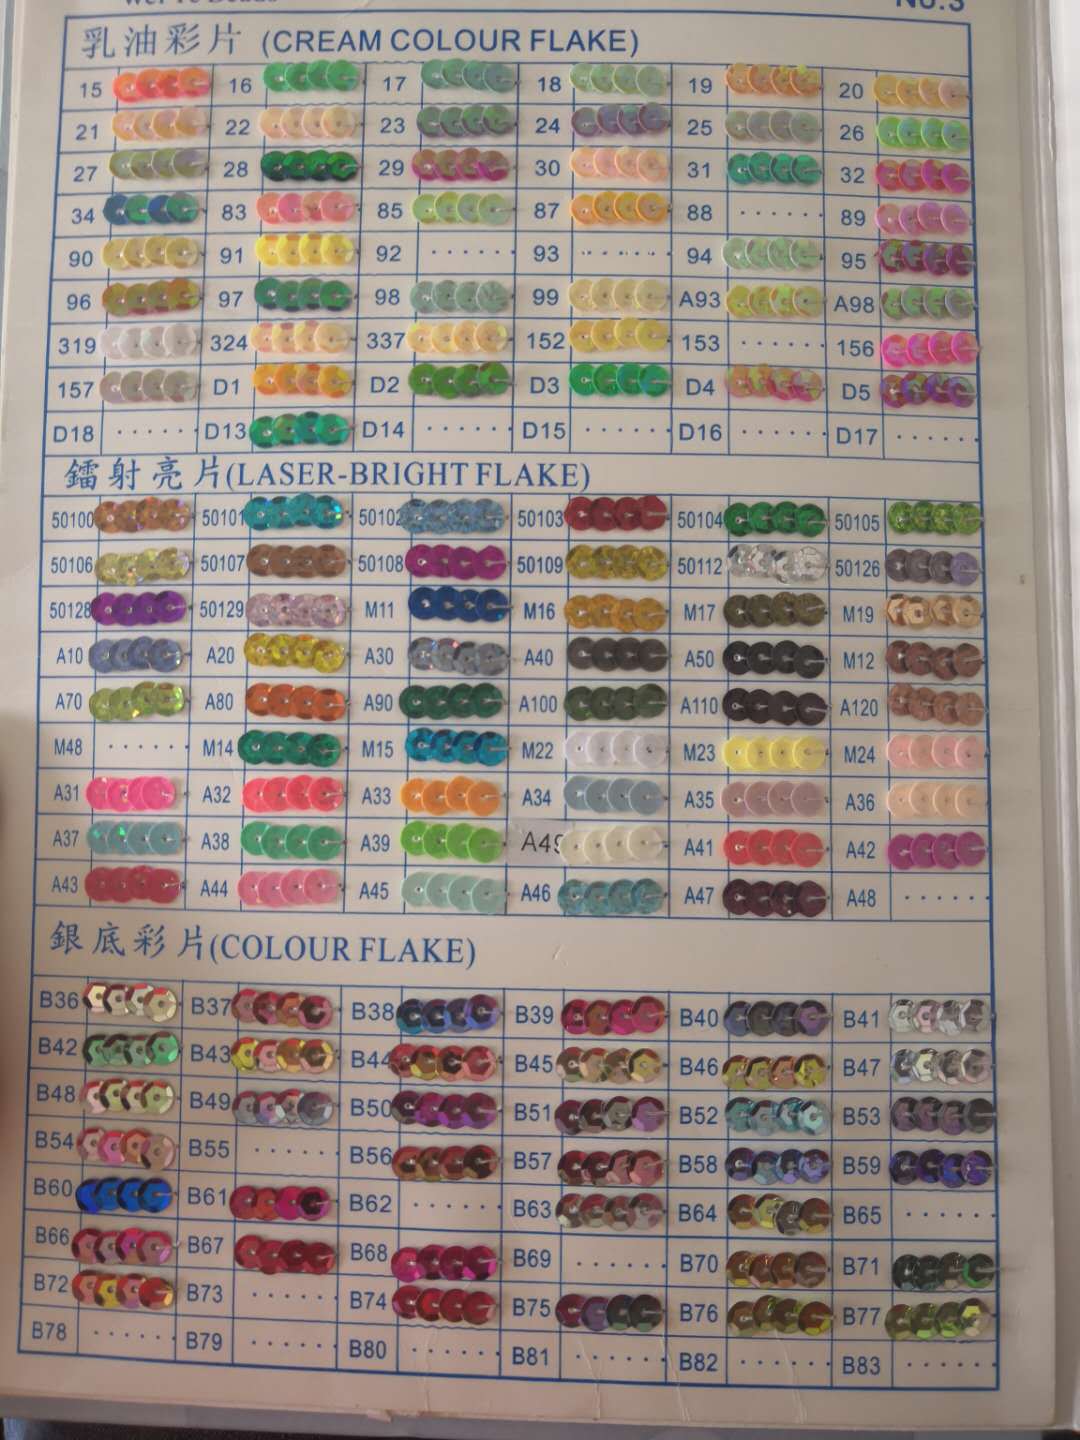 Beads
No.3
乳油彩片 (CREAM COLOUR FLAKE)
15 16 17 18 19 20
21 22 23 24 25 26
27 28 29 30 31 32
34 83 85 87 88 89
90 91 92 93 94 95
96 97 98 99 A93 A98
319 324 337 152 153 156
157 D1 D2 D3 D4 D5
D18 D13 D14 D15 D16 D17
鐳射亮片(LASER-BRIGHT FLAKE)
50100 50101 50102 50103 50104 50105
50106 50107 50108 50109 50112 50126
50128 50129 M11 M16 M17 M19
A10 A20 A30 A40 A50 M12
A70 A80 A90 A100 A110 A120
M48 M14 M15 M22 M23 M24
A31 A32 A33 A34 A35 A36
A37 A38 A39 A49 A41 A42
A43 A44 A45 A46 A47 A48
銀底彩片(COLOUR FLAKE)
B36 B37 B38 B39 B40 B41
B42 B43 B44 B45 B46 B47
B48 B49 B50 B51 B52 B53
B54 B55 B56 B57 B58 B59
B60 B61 B62 B63 B64 B65
B66 B67 B68 B69 B70 B71
B72 B73 B74 B75 B76 B77
B78 B79 B80 B81 B82 B83